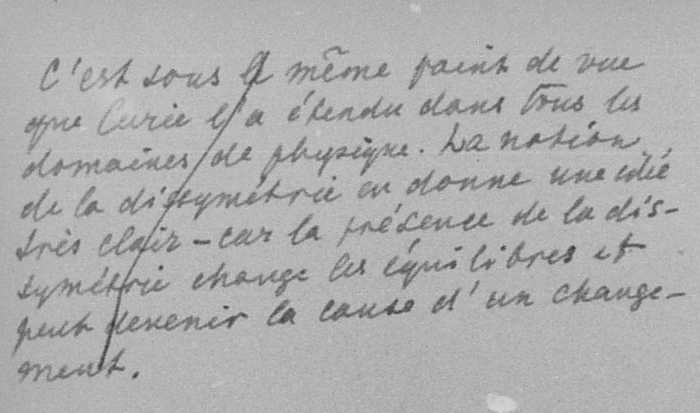 C'est sous le même point de vue
que Curie l'a étendu dans tous les
domaines de physique. La notion
de la dissymétrie en donne une idée
très clair – car la présence de la dis-
symétrie change les équilibres et
peut devenir la cause d'un change-
ment.